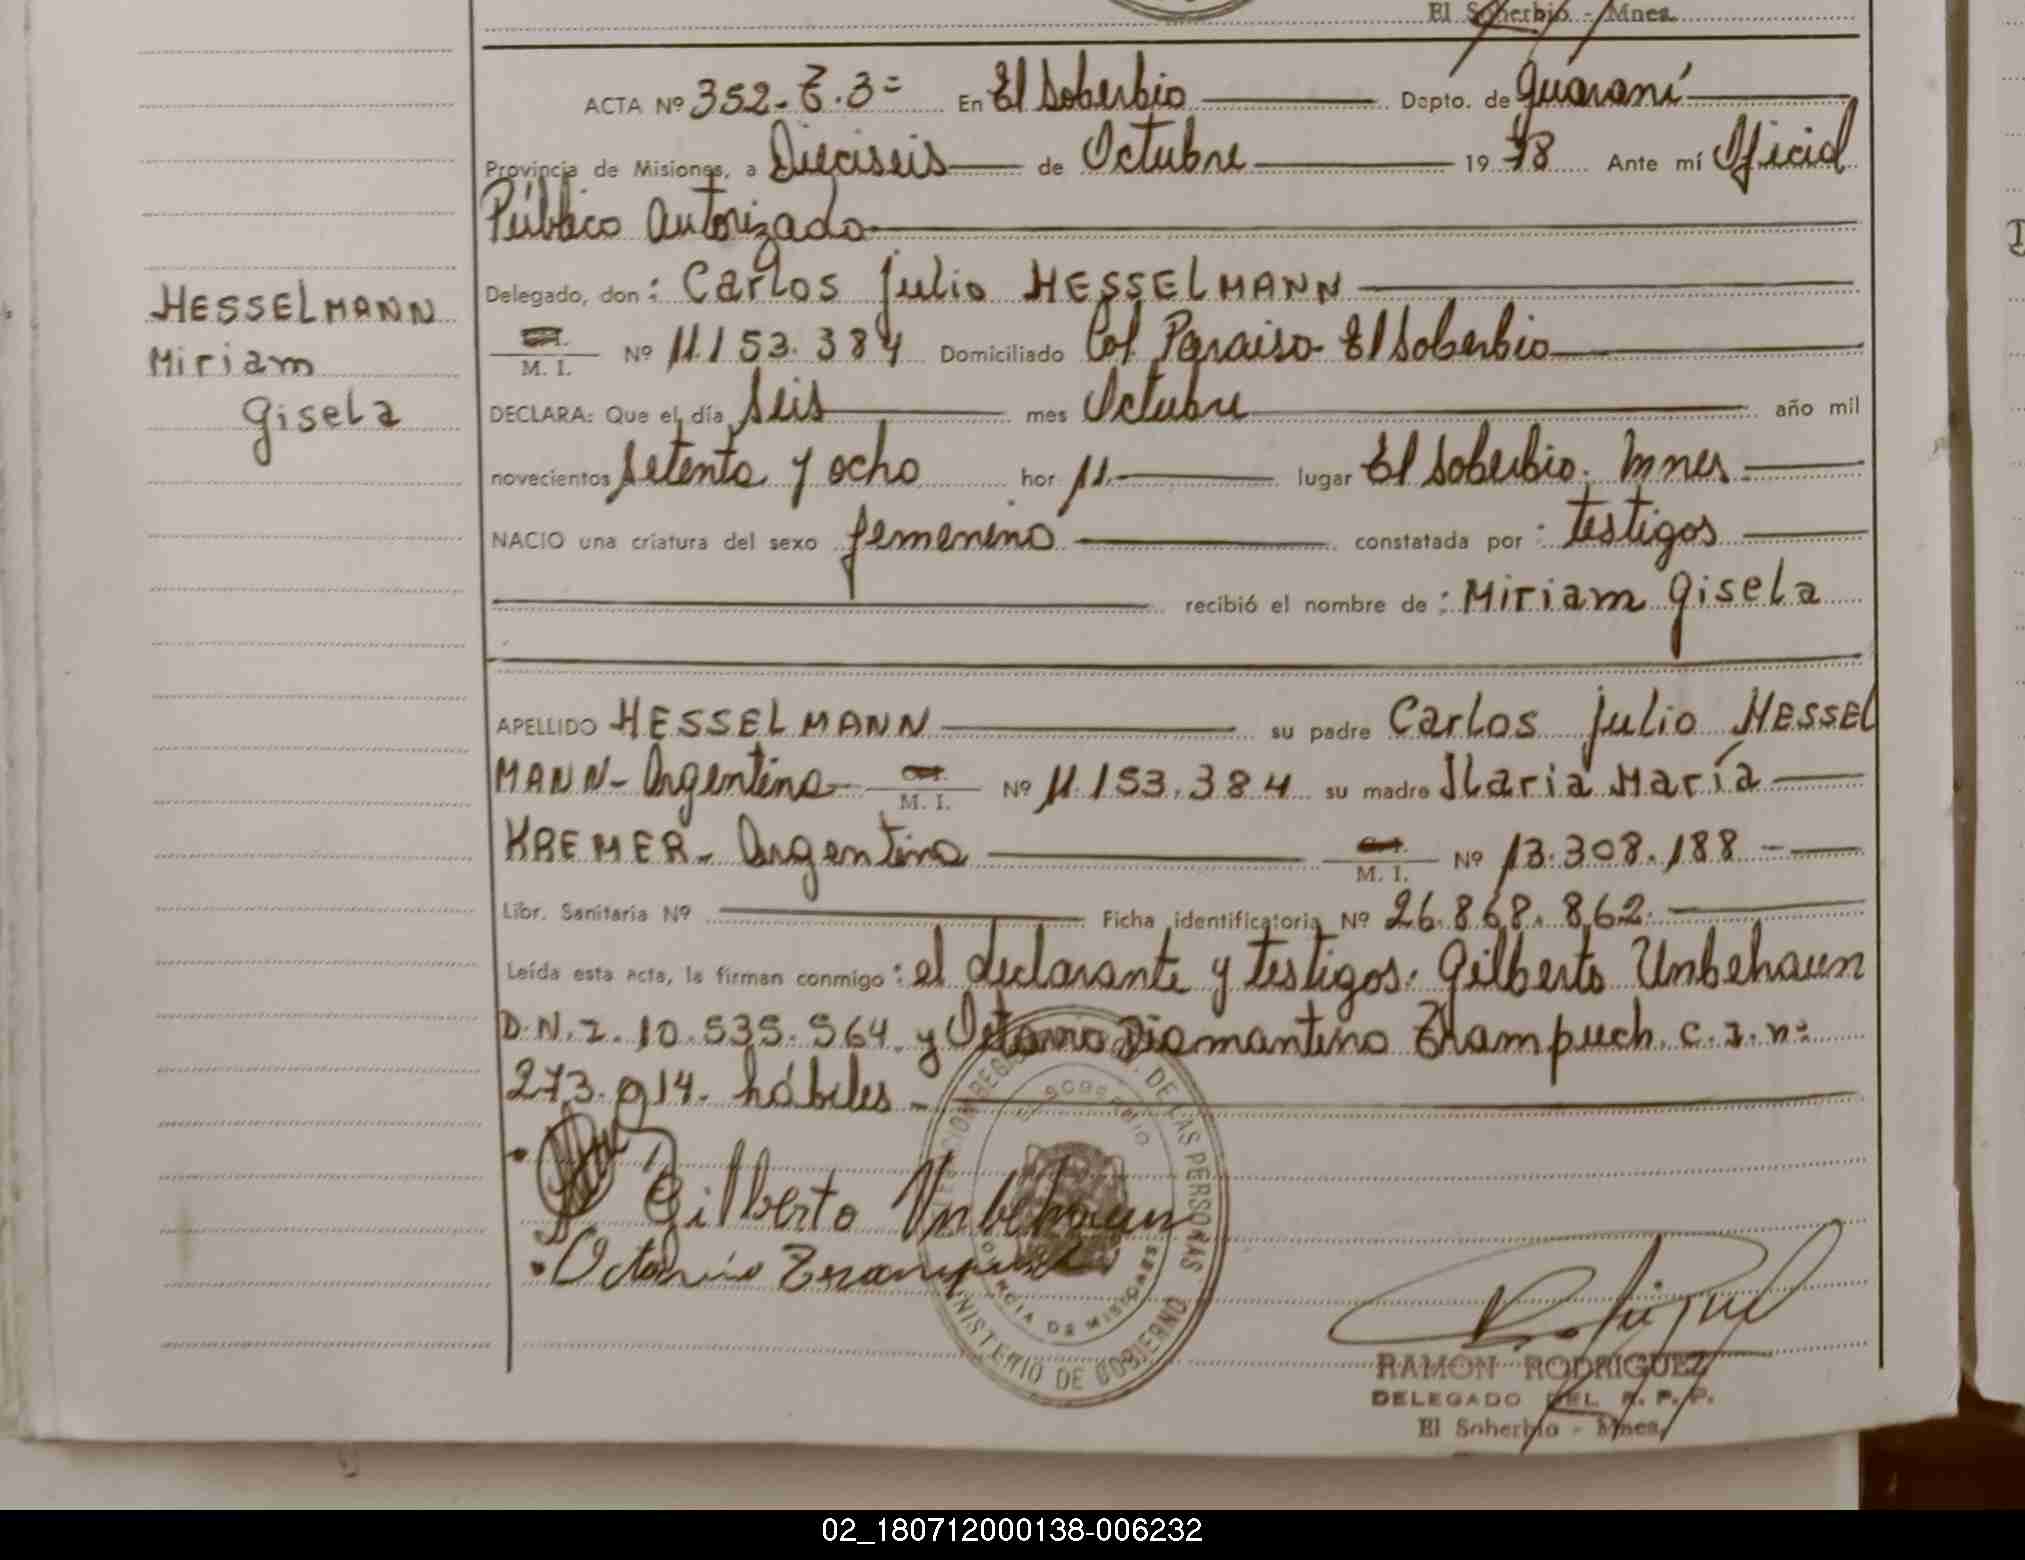 El Soberbio - Mnes.
ACTA Nº 352. T. 3= En El Soberbio Dpto. de Guaraní
Provincia de Misiones, a Dieciseis de Octubre 19 78 Ante mí Oficial
Público Autorizado
Delegado, don: Carlos Julio HESSELMANN
HESSELMANN
M. I. Nº 11.153.384 Domiciliado Col. Paraiso El Soberbio
Miriam
DECLARA: Que el día Seis mes Octubre año mil
Gisela
novecientos Setenta y ocho hor 11. lugar El Soberbio. Mnes
NACIO una criatura del sexo femenino constatada por: testigos
recibió el nombre de: Miriam Gisela
APELLIDO HESSELMANN su padre Carlos Julio HESSEL
MANN - Argentino M. I. Nº 11.153.384 su madre Ilaria María
KREMER - Argentina M. I. Nº 13.308.188 -
Libr. Sanitaria Nº Ficha identificatoria Nº 26.868.862.
Leída esta acta, la firman conmigo: el declarante y testigos: Gilberto Unbehaun
D.N.I. 10.535.564. y Octavio Diamantino Trampuch. c.i. nº
273.914. hábiles -
Gilberto Unbehaun
Octavio Trampuch
EL SOBERBIO
DE LAS PERSONAS
PROVINCIA DE MISIONES
MINISTERIO DE GOBIERNO
RAMON RODRIGUEZ
DELEGADO DEL R. P. P.
El Soberbio - Mnes.
02_180712000138-006232